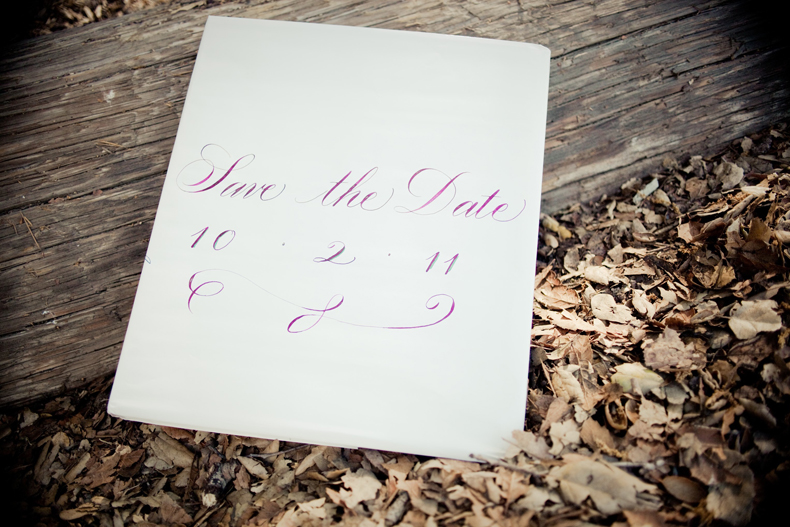 Save the Date
10 · 2 · 11